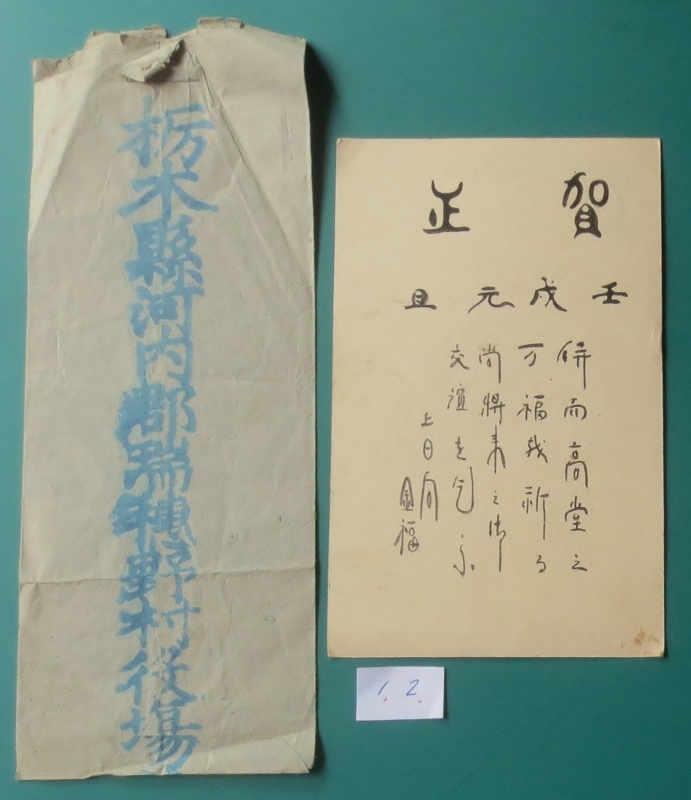 栃木縣河内郡瑞穂野村役場
賀正
壬戌元旦
併而高堂之
万福我祈る
尚將来之御
交誼を乞ふ
上日向
金福
1. 2.